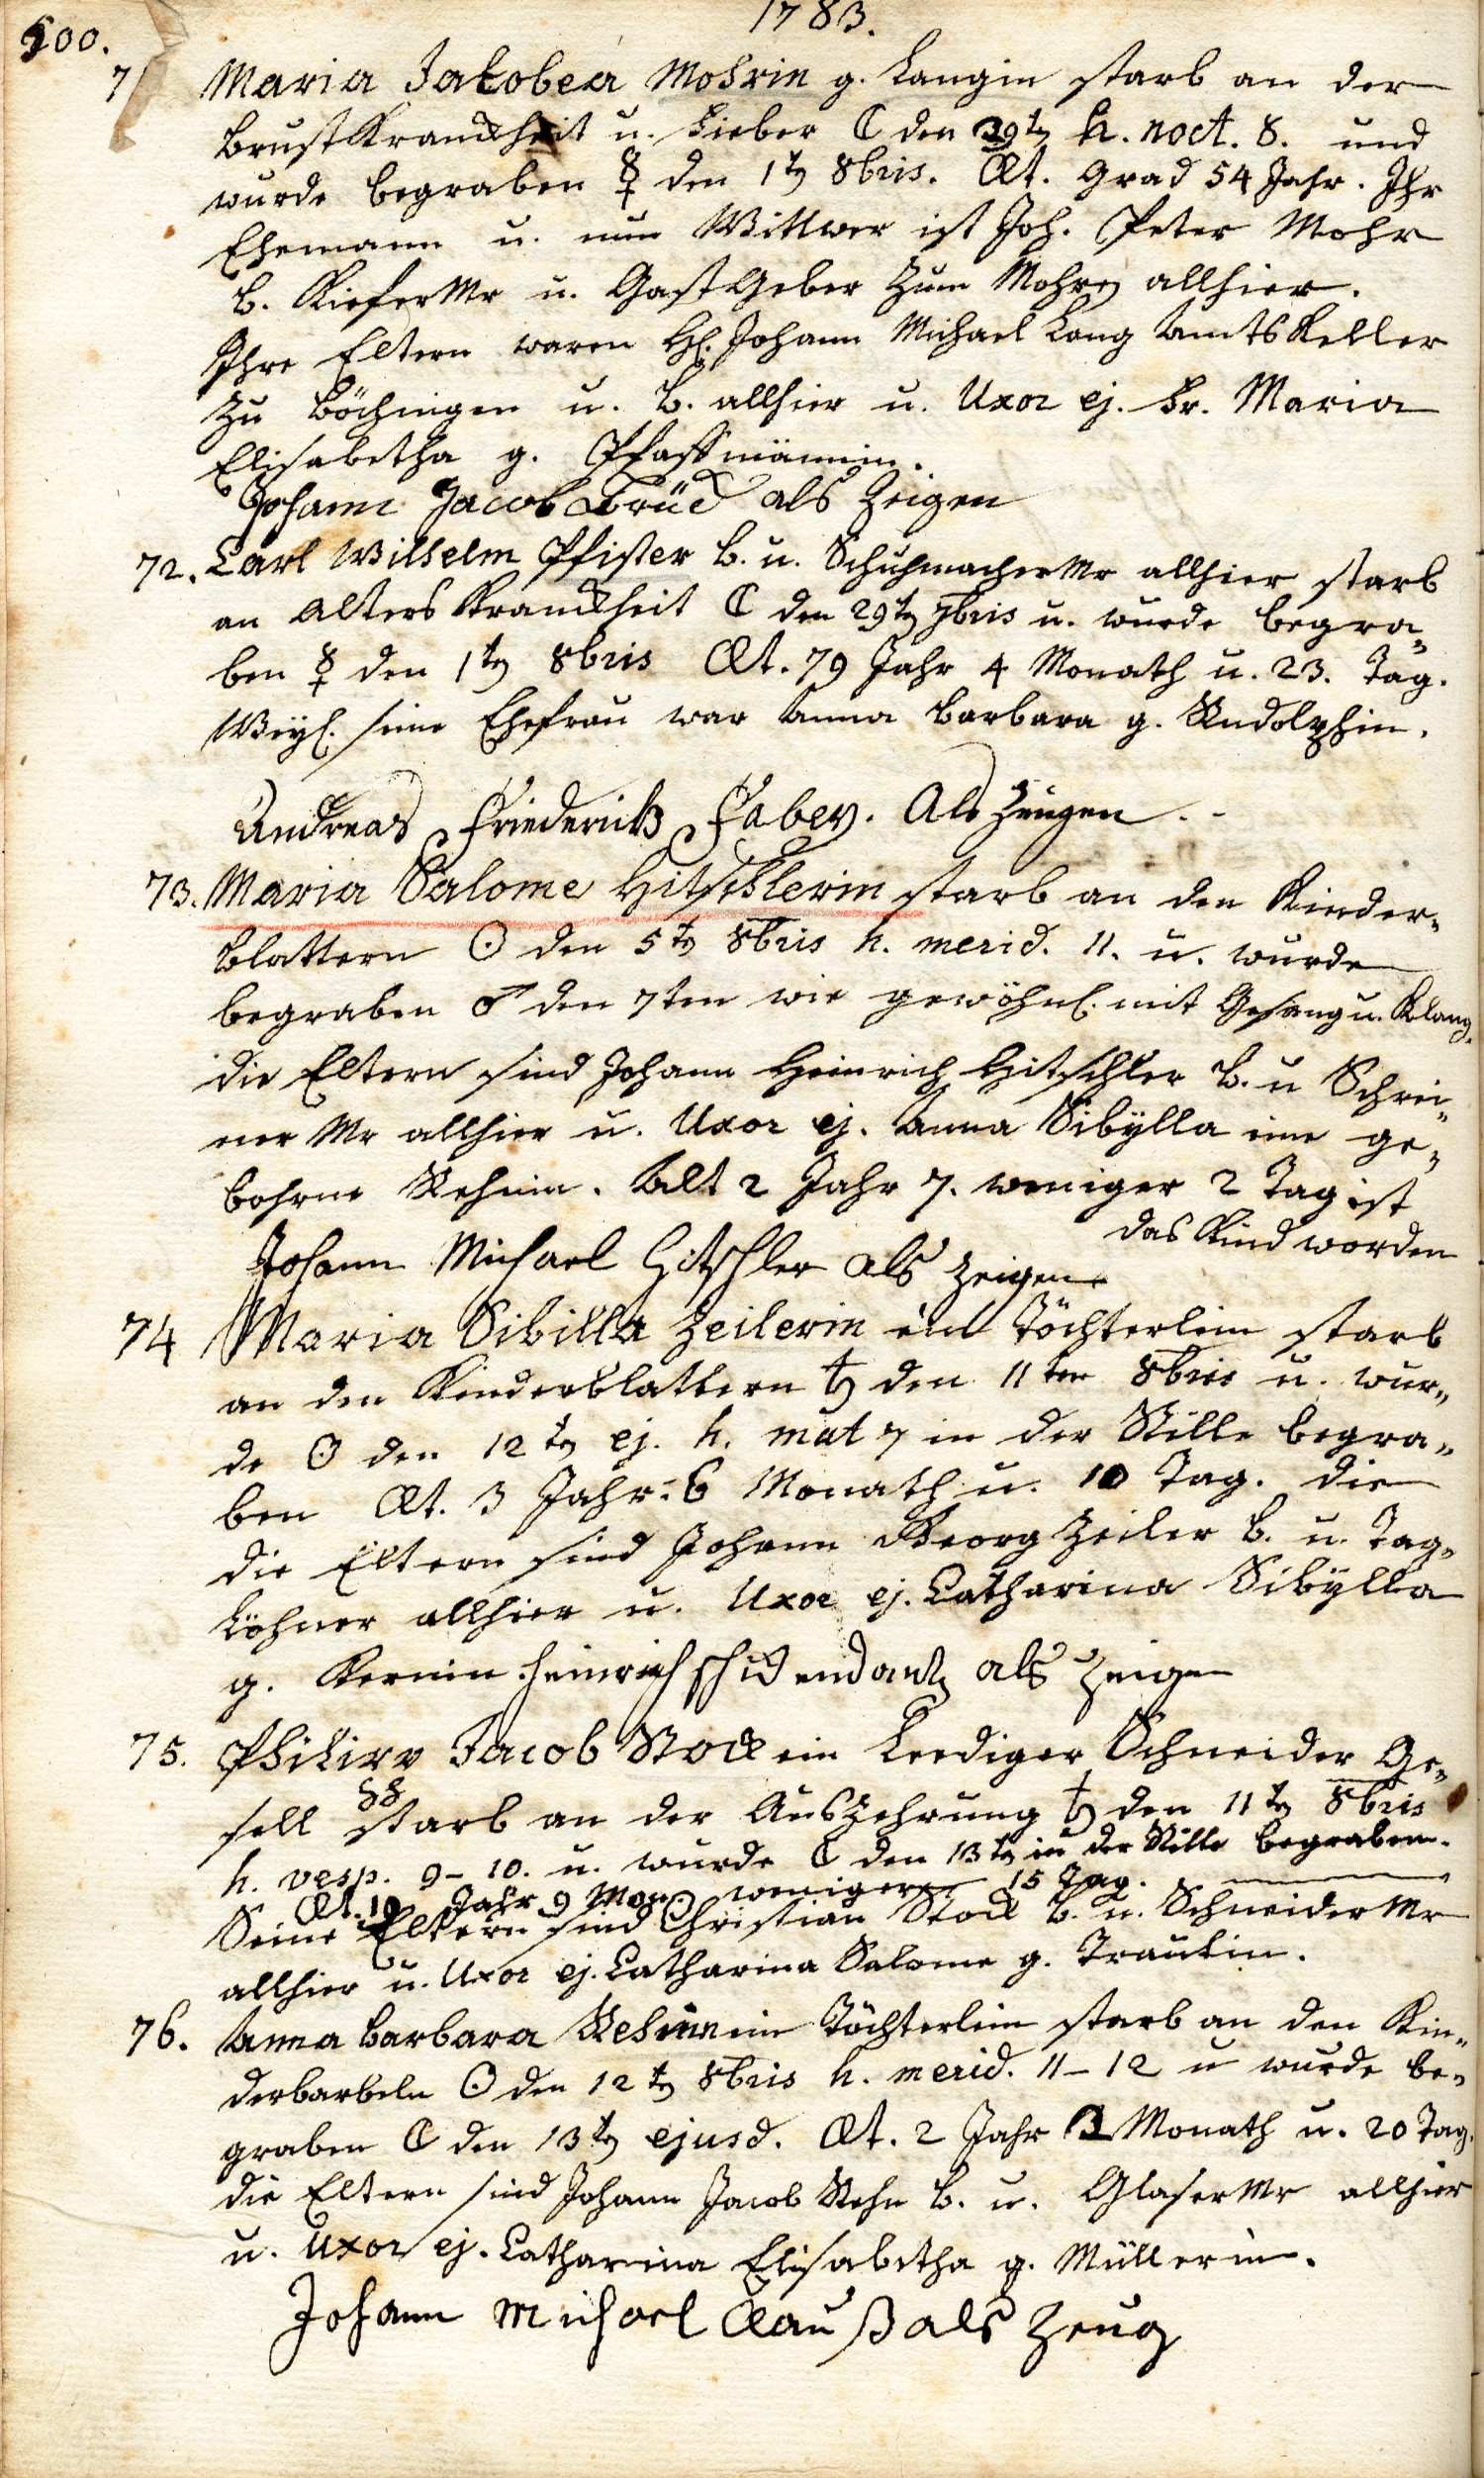 500.
1783.
71 Maria Jakobea Mohrin g. Langin starb an der
Brustkranckheit u. Fieber ☾ den 29t. h. noct. 8. und
wurde begraben ☿ den 1t. 8bris. Æt. Grad 54 Jahr. Ihr
Ehemann u. nun Wittwer ist Joh. Peter Mohr
b. KieferMr u. GastGeber zum Mohren allhier.
Ihre Eltern waren H. Johann Michael Lang AmtsKeller
zu Böchingen u. b. allhier u. Uxor ej. Fr. Maria
Elisabetha g. Pfaffmännin.
Johann Jacob Brück als Zeigen
72. Carl Wilhelm Pfister b. u. SchuhmacherMr allhier starb
an Alterskranckheit ☾ den 29t. 7bris u. wurde begra„
ben ☿ den 1t. 8bris Æt. 79 Jahr 4 Monath u. 23. Tag.
Weyl. seine Ehefrau war Anna Barbara g. Rudolphin.
Andreas Friederich Faber. Als Zeugen.
73. Maria Salome Hitschlerin starb an den Kinder„
blattern ☉ den 5t. 8bris h. merid. 11. u. wurde
begraben ♂ den 7ten wie gewöhnl. mit Gesang u. Klang.
die Eltern sind Johann Heinrich Hitschler b. u Schrei„
ner Mr allhier u. Uxor ej. Anna Sibÿlla eine ge„
bohrne Rehnin. Alt 2 Jahr 7. weniger 2 Tag ist
das Kind worden
Johann Michael Hitschler als Zeigen
74 Maria Sibilla Zeilerin ein Töchterlein starb
an den Kinderblattern ♄ den 11ten 8bris u. wur„
de ☉ den 12t. ej. h. mat 7 in der Stille begra„
ben Æt. 3 Jahr. 6 Monath u. 10 Tag. die
die Eltern sind Johann Georg Zeiler b. u. Tag„
löhner allhier u. Uxor ej. Catharina Sibÿlla
g. Kernin. Heinrich schickendantz als Zeigen
75. Philipp Jacob Stock ein Lediger Schneider Ge„
sell starb an der Auszehrung ♄ den 11t. 8bris
h. vesp. 9-10. u. wurde ☾ den 13t. in der Stille begraben.
Æt. 19 Jahr 9 Mon. weniger 15 Tag.
Seine Eltern sind Christian Stock b. u. SchneiderMr
allhier u. Uxor ej. Catharina Salome g. Trautin.
76. Anna Barbara Rehnin ein Töchterlein starb an den Kin„
derbarbeln ☉ den 12t. 8bris h. merid. 11-12 u wurde be„
graben ☾ den 13t. ejusd. Æt. 2 Jahr 3 Monath u. 20 Tag.
die Eltern sind Johann Jacob Rehn b. u. GlaserMr allhier
u. Uxor ej. Catharina Elisabetha g. Müllerin.
Johann Michael Clauß als Zeug